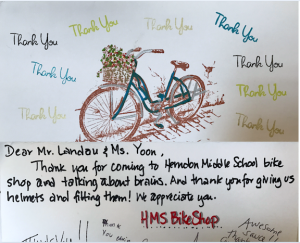 Thank You
Thank You
Thank You
Thank You
Thank You
Thank You
Thank You
Thank You
Dear Mr. Landau & Ms. Yoon,
Thank you for coming to Herndon Middle School bike
shop and talking about brains. And thank you for giving us
helmets and fitting them! We appreciate you.
HMS BikeShop
Awesome